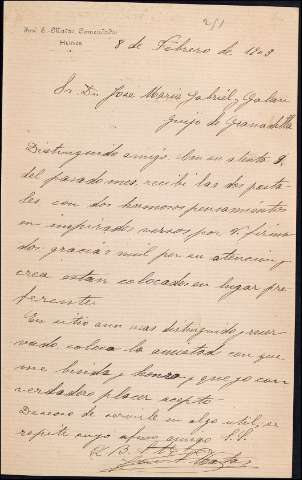 2/1
José E. Matas Comendador
Hervás
8 de Febrero de 1903
Sr. Dn José María Gabriel y Galan
Guijo de Granadilla
Distinguido amigo: Con su atenta 8,
del pasado mes, recibí las dos posta-
les con dos hermosos pensamientos
en inspirados versos por V. firma-
dos; gracias mil por su atencion y
crea estan colocados en lugar pre-
ferente.
En sitio aun mas distinguido y reser-
vado, coloco la amistad con que
me brinda y honra, y que yo con
verdadero placer acepto.
Deseoso de servirle en algo util, se
repite suyo afmo amigo S.S.
Q. B.